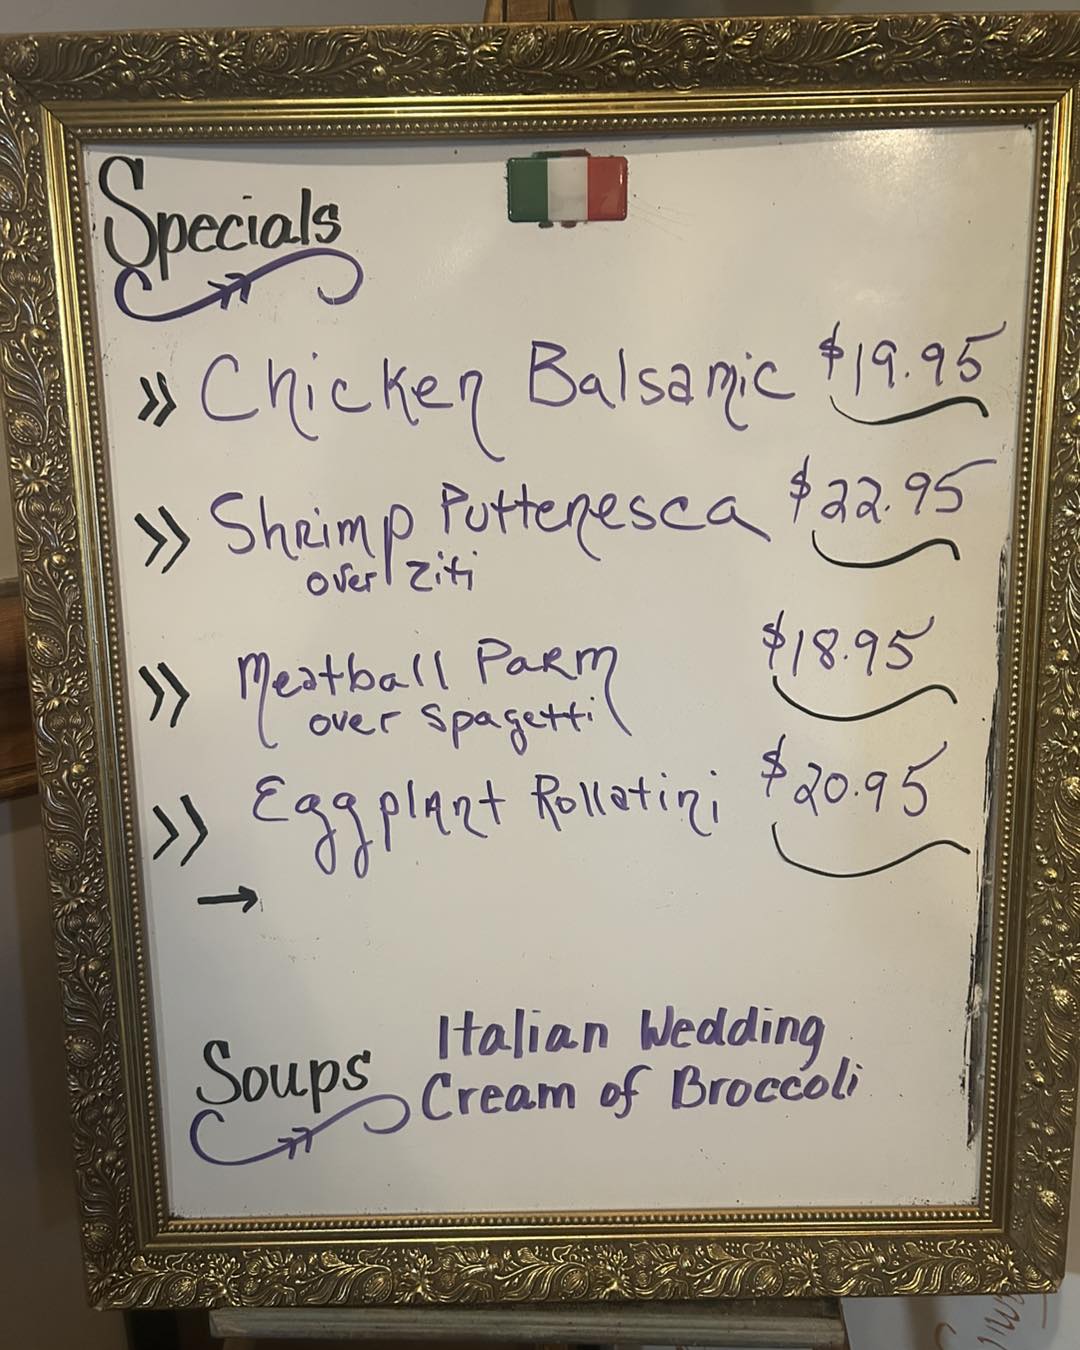 Specials
» Chicken Balsamic $19.95
» Shrimp Puttenesca $22.95
over ziti
» Meatball Parm $18.95
over spagetti
» Eggplant Rollatini $20.95
→
Soups Italian Wedding
Cream of Broccoli